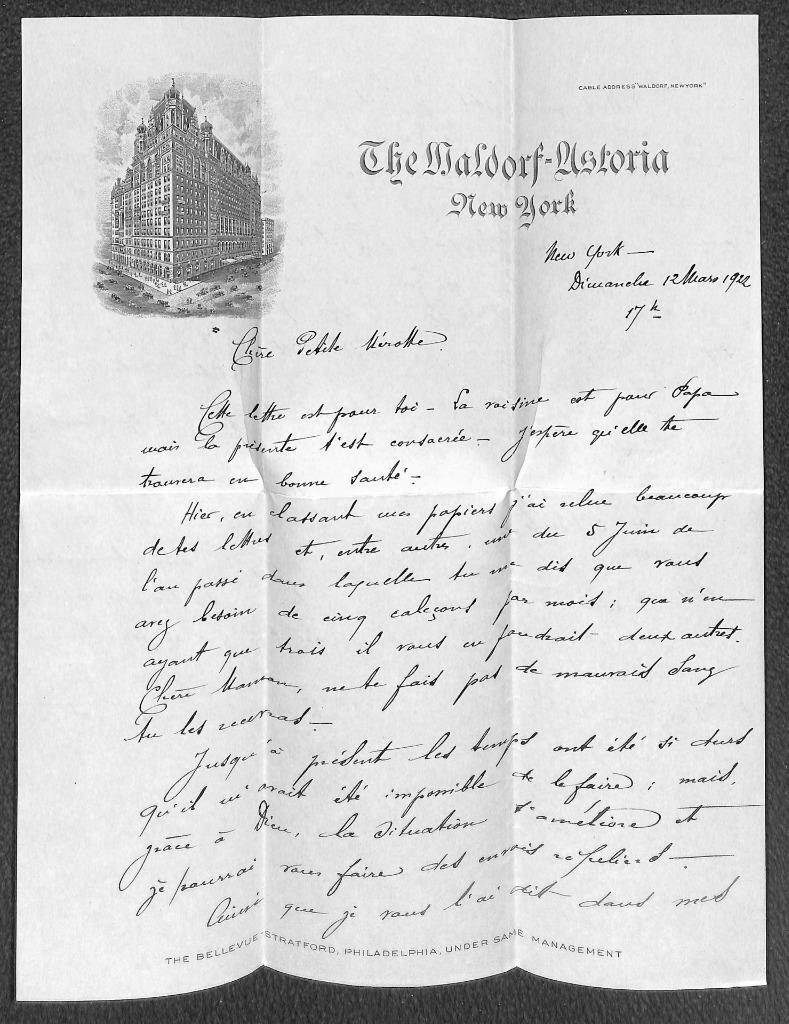 CABLE ADDRESS "WALDORF, NEWYORK"
The Waldorf-Astoria
New York
New York —
Dimanche 12 Mars 1922
17h
Chère Petite Mérotte
Cette lettre est pour toi — La voisine est pour Papa
mais la présente t'est consacrée — J'espère qu'elle te
trouvera en bonne santé —
Hier, en classant mes papiers j'ai relue beaucoup
de tes lettres et, entre autres, une du 5 Juin de
l'an passé dans laquelle tu me dis que vous
avez besoin de cinq caleçons par mois ; que n'en
ayant que trois il vous en faudrait deux autres.
Chère Maman, ne te fais pas de mauvais sang
tu les recevras —
Jusqu'à présent les temps ont été si durs
qu'il m'avait été impossible de le faire ; mais,
grâce à Dieu, la situation s'améliore et
je pourrai vous faire des envois réguliers —
Ainsi que je vous l'ai dit dans mes
THE BELLEVUE-STRATFORD, PHILADELPHIA, UNDER SAME MANAGEMENT